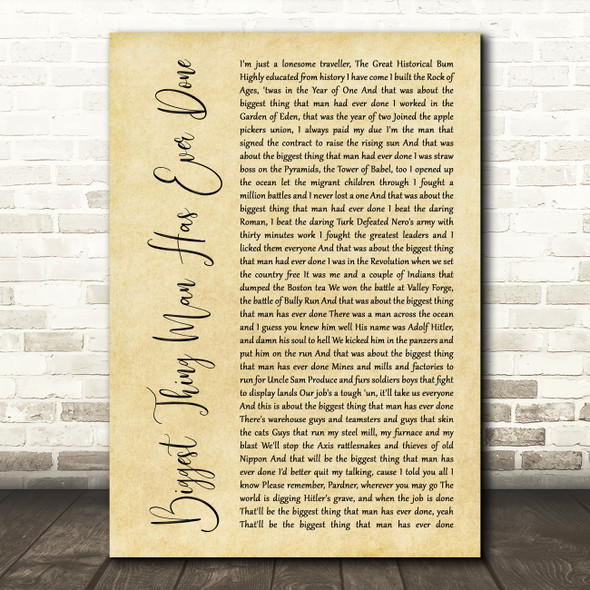 Biggest Thing Man Has Ever Done
I'm just a lonesome traveller, The Great Historical Bum
Highly educated from history I have come I built the Rock of
Ages, 'twas in the Year of One And that was about the
biggest thing that man had ever done I worked in the
Garden of Eden, that was the year of two Joined the apple
pickers union, I always paid my due I'm the man that
signed the contract to raise the rising sun And that
was about the biggest thing that man had ever done I was straw
boss on the Pyramids, the Tower of Babel, too I opened up
the ocean let the migrant children through I fought a
million battles and I never lost a one And that was about the
biggest thing that man had ever done I beat the daring
Roman, I beat the daring Turk Defeated Nero's army with
thirty minutes work I fought the greatest leaders and I
licked them everyone And that was about the biggest thing
that man had ever done I was in the Revolution when we set
the country free It was me and a couple of Indians that
dumped the Boston tea We won the battle at Valley Forge,
the battle of Bully Run And that was about the biggest thing
that man has ever done There was a man across the ocean
and I guess you knew him well His name was Adolf Hitler,
and damn his soul to hell We kicked him in the panzers and
put him on the run And that was about the biggest thing
that man has ever done Mines and mills and factories to
run for Uncle Sam Produce and furs soldiers boys that fight
to display lands Our job's a tough 'un, it'll take us everyone
And this is about the biggest thing that man has ever done
There's warehouse guys and teamsters and guys that skin
the cats Guys that run my steel mill, my furnace and my
blast We'll stop the Axis rattlesnakes and thieves of old
Nippon And that will be the biggest thing that man has
ever done I'd better quit my talking, cause I told you all I
know Please remember, Pardner, wherever you may go The
world is digging Hitler's grave, and when the job is done
That'll be the biggest thing that man has ever done, yeah
That'll be the biggest thing that man has ever done